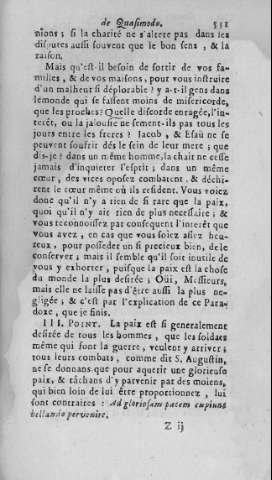 de Quasimodo. 531
nions ; si la charité ne s'altere pas dans les
disputes aussi souvent que le bon sens , & la
raison.
Mais qu'est-il besoin de sortir de vos fa-
milles, & de vos maisons, pour vous instruire
d'un malheur si déplorable ? y a-t-il gens dans
le monde qui se fassent moins de misericorde,
que les proches? Quelle discorde enragée, l'in-
terêt, ou la jalousie ne sement-ils pas tous les
jours entre les freres ? Jacob , & Esaü ne se
peuvent souffrir dés le sein de leur mere ; que
dis-je ? dans un même homme, la chair ne cesse
jamais d'inquieter l'esprit ; dans un même
cœur , des vices oposez combatent , & déchi-
rent le cœur même où ils resident. Vous voiez
donc qu'il n'y a rien de si rare que la paix,
quoi qu'il n'y ait rien de plus necessaire ; &
vous reconnoissez par consequent l'interêt que
vous avez , en cas que vous soiez assez heu-
reux , pour posseder un si precieux bien, de le
conserver ; mais il semble qu'il soit inutile de
vous y exhorter , puisque la paix est la chose
du monde la plus desirée ; Oüi, Messieurs,
mais elle ne laisse pas d'être aussi la plus ne-
gligée ; & c'est par l'explication de ce Para-
doxe , que je finis.
III. POINT. La paix est si generalement
desirée de tous les hommes , que les soldats
même qui font la guerre, veulent y arriver ;
tous leurs combats , comme dit S. Augustin,
ne se donnans que pour aquerir une glorieuse
paix, & tâchans d'y parvenir par des moiens,
qui bien loin de lui être proportionnez , lui
sont contraires : Ad gloriosam pacem cupiunt
bellando pervenire.
Z ij